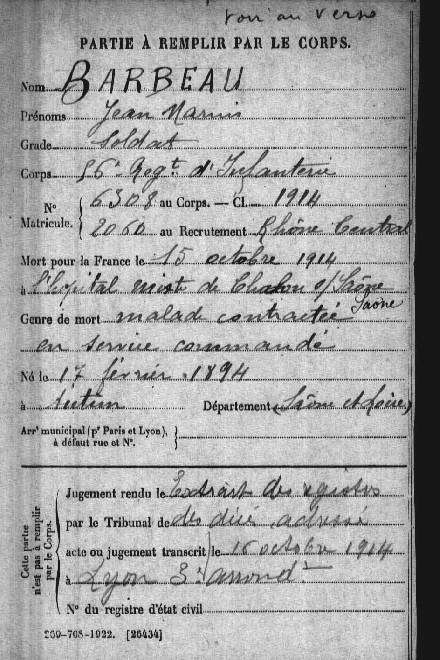 Voir au verso
PARTIE À REMPLIR PAR LE CORPS.
Nom BARBEAU
Prénoms Jean Marius
Grade Soldat
Corps 56e Regt. d'Infanterie
N° Matricule. 6308 au Corps. — Cl. 1914
2060 au Recrutement Rhône Central
Mort pour la France le 15 octobre 1914
à l'hopital mixt de Chalon s/ Saône
Saône
Genre de mort malad contractée
en service commandé
Né le 17 février 1894
à Département (Saône et Loire)
Arrt municipal (pr Paris et Lyon), à défaut rue et N°.
Cette partie n'est pas à remplir par le Corps.
Jugement rendu le Extrait des registres
par le Tribunal de des
acte ou jugement transcrit le 16 octobre 1914
à Lyon 3e arrondt
N° du registre d'état civil
269-708-1922. [26434]